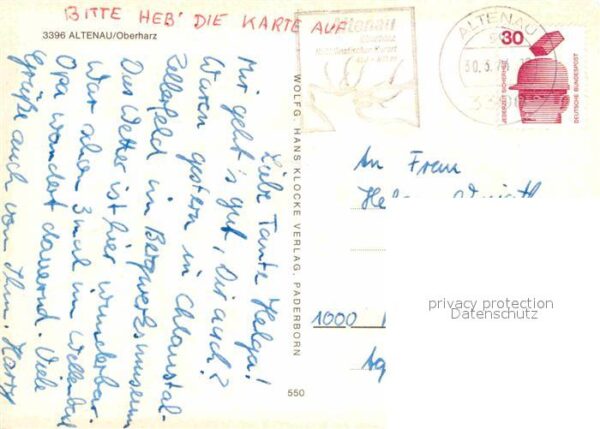 BITTE HEB' DIE KARTE AUF
3396 ALTENAU/Oberharz
Liebe Tante Helga!
Mir geht's gut, Dir auch?
Waren gestern in Clausthal-
Zellerfeld im Bergwerksmuseum
Das Wetter ist hier wunderbar.
War schon 3 mal im Wellenbad
Opa wandert dauernd. Viele
Grüße auch von Ihm. Harry
WOLFG. HANS KLOCKE VERLAG, PADERBORN
550
Altenau
Oberharz
ALTENAU
30.3.
30
JEDERZEIT SICHERHEIT
DEUTSCHE BUNDESPOST
An Frau
1000
privacy protection
Datenschutz